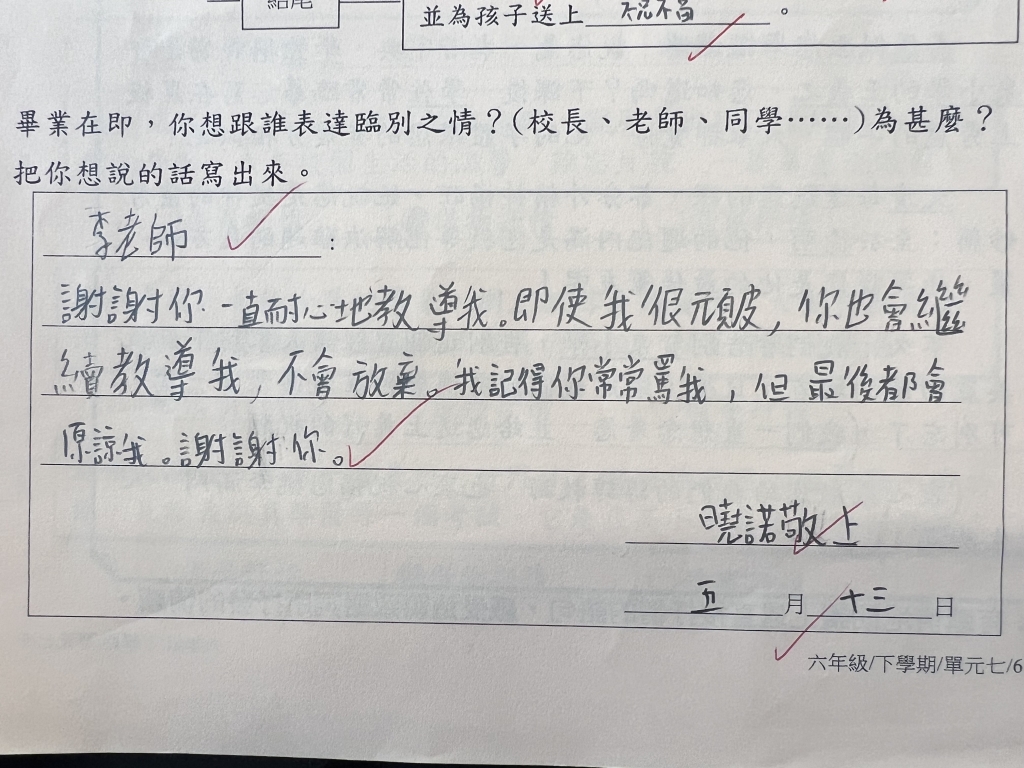 結尾
並為孩子送上 祝福 。
畢業在即，你想跟誰表達臨別之情？(校長、老師、同學……)為甚麼？
把你想說的話寫出來。
李老師：
謝謝你一直耐心地教導我。即使我很頑皮，你也會繼
續教導我，不會放棄。我記得你常常罵我，但最後都會
原諒我。謝謝你。
曉諾敬上
五月十三日
六年級/下學期/單元七/6